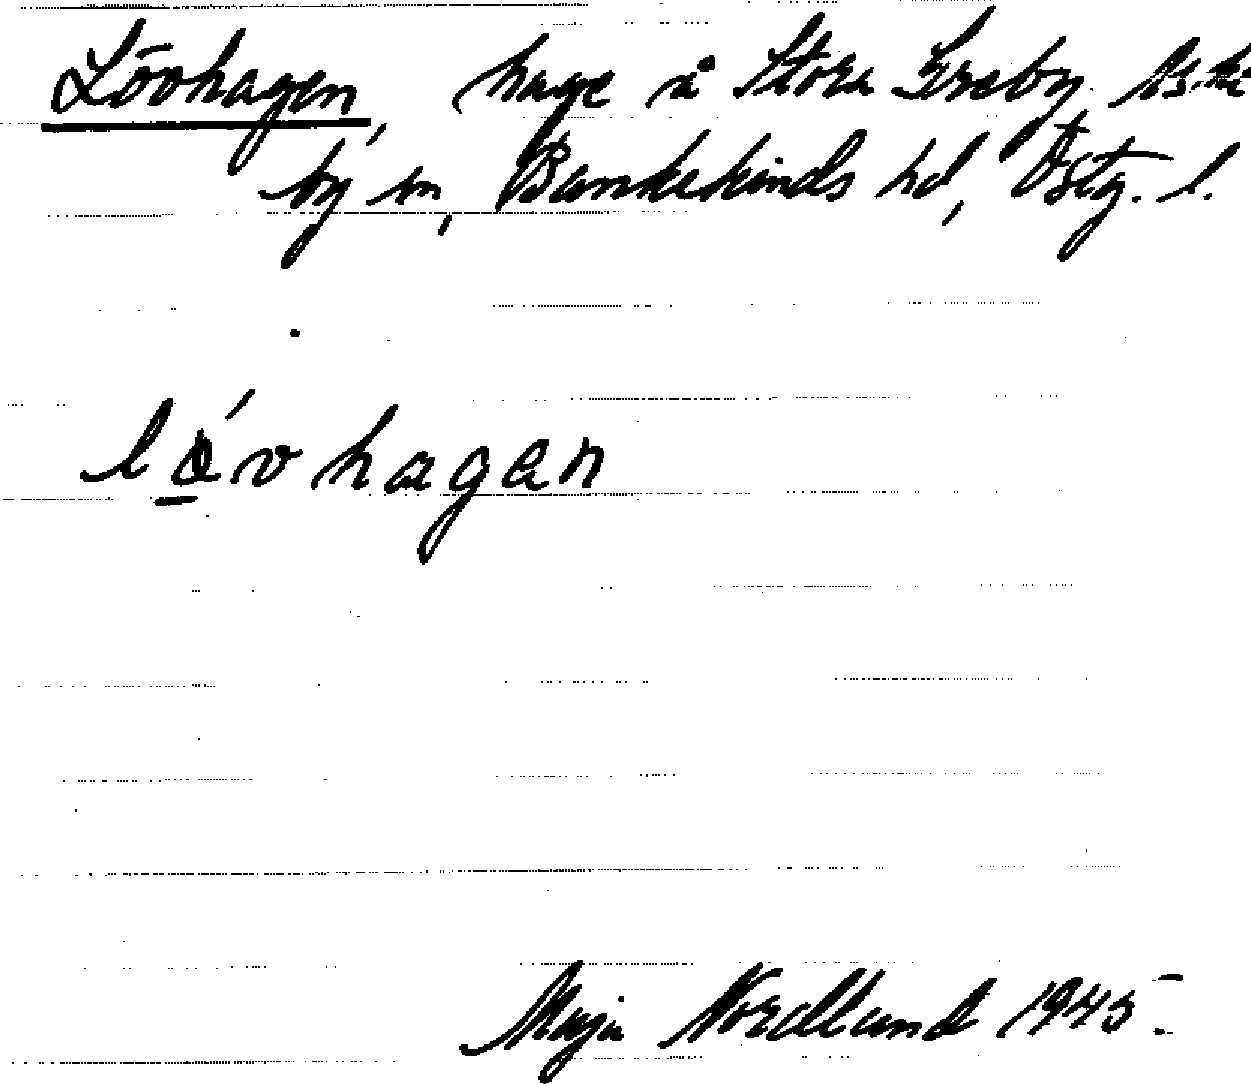 Lövhagen, hage å Stora Greby Aska-
by sn, Bankekinds hd, Östg. l.
lǫ́vhagan
Maja Nordlund 1945